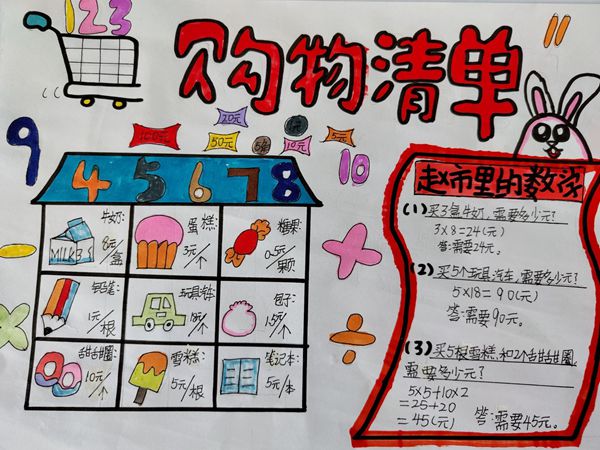 123
购物清单
11
9
100元
20元
50元
5角
10元
5元
10
4 5 6 7 8
牛奶:
8元/盒
蛋糕:
3元/个
糖果:
0.5元/颗
铅笔:
1元/根
玩具车:
18元/个
包子:
1.5元/个
甜甜圈:
10元/个
雪糕:
5元/根
笔记本:
5元/本
超市里的数学
(1)买3盒牛奶,需要多少元?
3×8=24(元)
答:需要24元。
(2)买5个玩具汽车,需要多少元?
5×18=90(元)
答:需要90元。
(3)买5根雪糕,和2个甜甜圈,
需要多少元?
5×5+10×2
=25+20
=45(元) 答:需要45元。